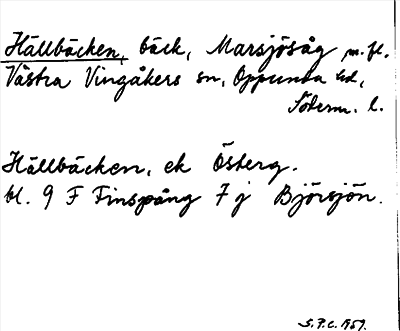 Hällbäcken, bäck, Marsjösåg m.fl.
Västra Vingåkers sn, Oppunda hd,
Söderm. l.
Hällbäcken, ek Österg.
bl. 9 F Finspång 7 j Björsjön.
S.P.C. 1959.